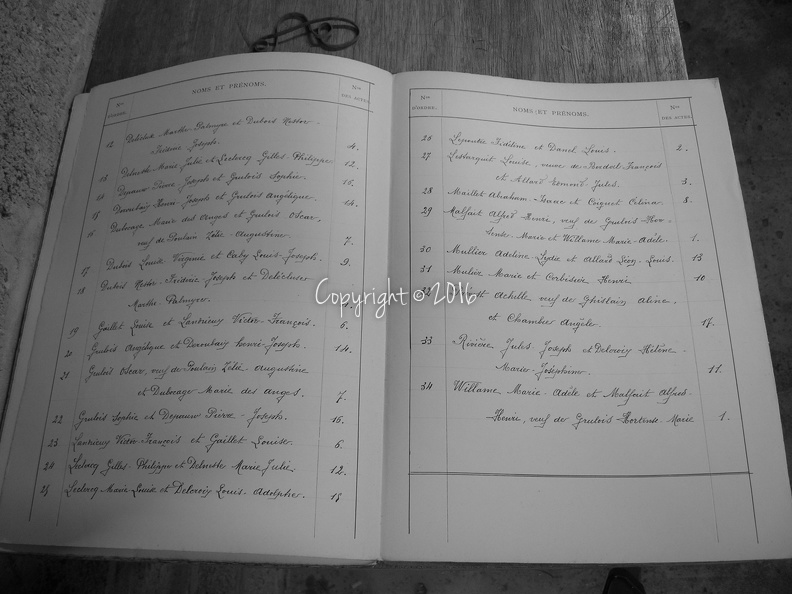 Nos D'ORDRE. NOMS ET PRÉNOMS. Nos DES ACTES.
12 Delécluse Marthe-Palmyre et Dubois Nestor-
Frédéric Joseph. 4.
13 Delmotte Marie Julie et Leclercq Gilles-Philippe 12.
14 Depauw Pierre-Joseph et Grulois Sophie. 16.
15 Deroubaix Henri-Joseph et Grulois Angélique. 14.
16 Dubocage Marie des Anges et Grulois Oscar,
veuf de Poulain Zélie-Augustine. 7.
17 Dubois Louise Virginie et Carby Louis-Joseph. 9.
18 Dubois Nestor-Frédéric Joseph et Delécluse
Marthe-Palmyre.
19 Gaillet Louise et Lantrieux Victor-François. 6.
20 Grulois Angélique et Deroubaix Henri-Joseph. 14.
21 Grulois Oscar, veuf de Poulain Zélie-Augustine
et Dubocage Marie des Anges. 7.
22 Grulois Sophie et Depauw Pierre-Joseph. 16.
23 Lantrieux Victor François et Gaillet Louise. 6.
24 Leclercq Gilles-Philippe et Delmotte Marie Julie. 12.
25 Leclercq Marie-Louise et Delcroix Louis-Adolphe. 15.
Nos D'ORDRE. NOMS ET PRÉNOMS. Nos DES ACTES.
26 Fidéline et Danel Louis. 2.
27 Louise, veuve de François
et Allard Jules. 3.
28 Maillet Abraham-Isaac et Coignet Célina. 8.
29 Malfait Alfred-Henri, veuf de Grulois Hor-
tense-Marie et Willame Marie-Adèle. 1.
30 Mullier Adeline-Lydie et Allard Léon-Louis. 13
31 Mulier Marie et Corbisier Henri 10
32 Achille veuf de Ghislain Aline,
et Chambier Angèle. 17.
33 Rivière Jules-Joseph et Delcroix Hélène-
Marie-Joséphine. 11.
34 Willame Marie-Adèle et Malfait Alfred-
Henri, veuf de Grulois Hortense-Marie 1.
Copyright © 2016